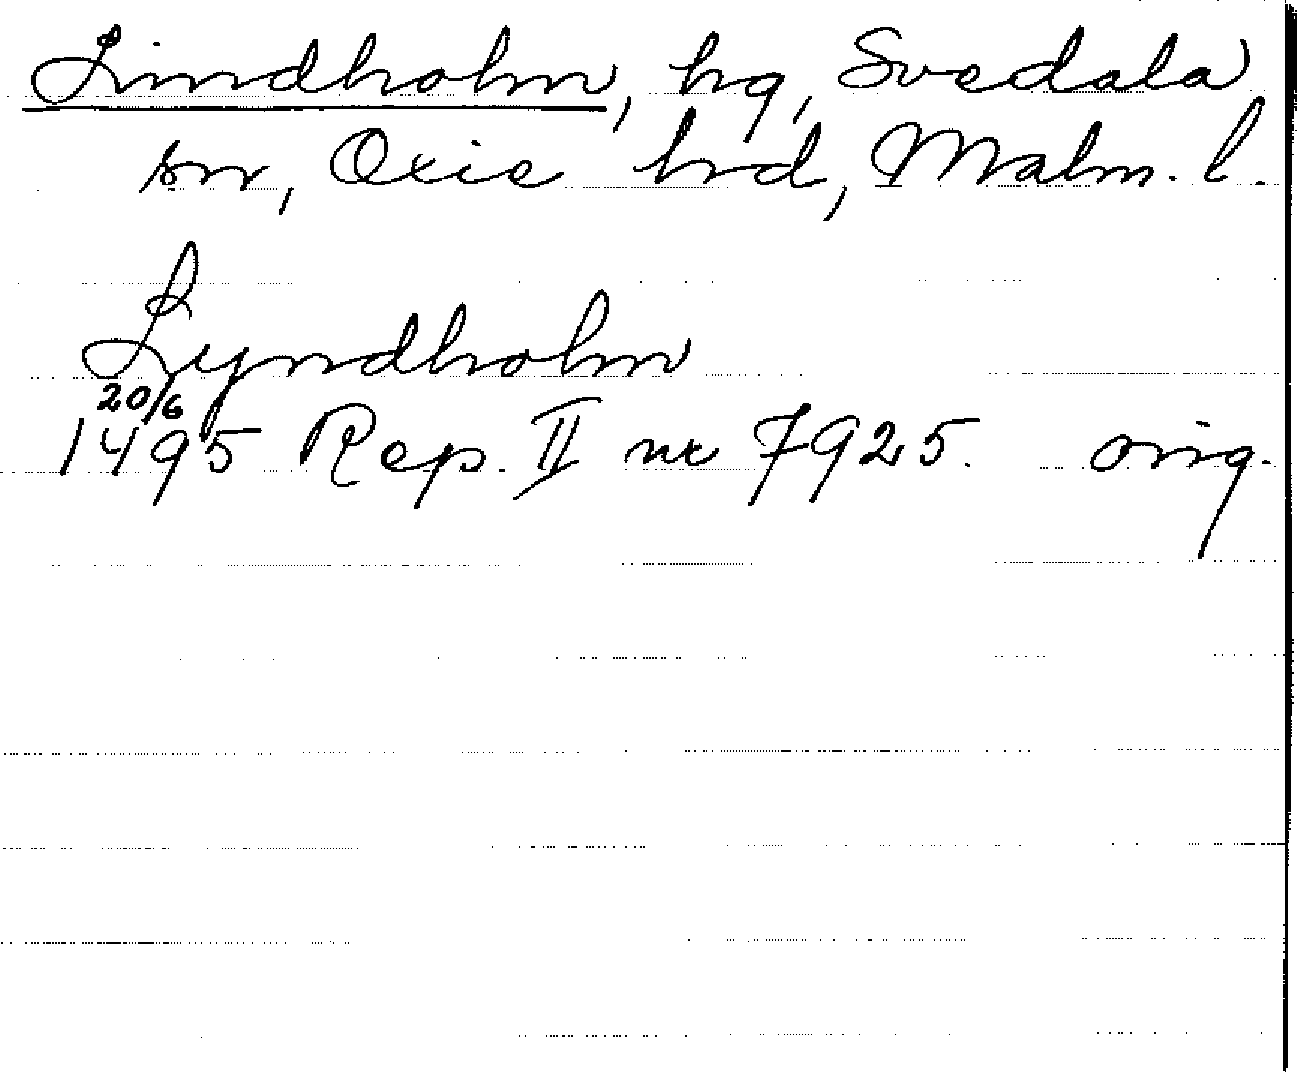 Lindholm, hg, Svedala
sn, Oxie hrd, Malm. l.
Lyndholm
20/6
1495 Rep. II nr 7925. orig.